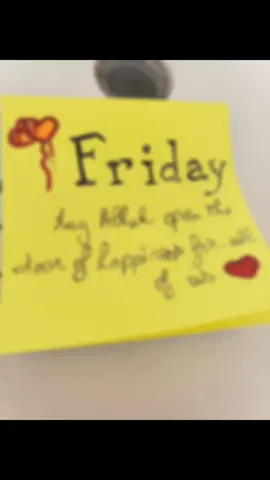 Friday
May Allah open the
door of happiness for all
of us